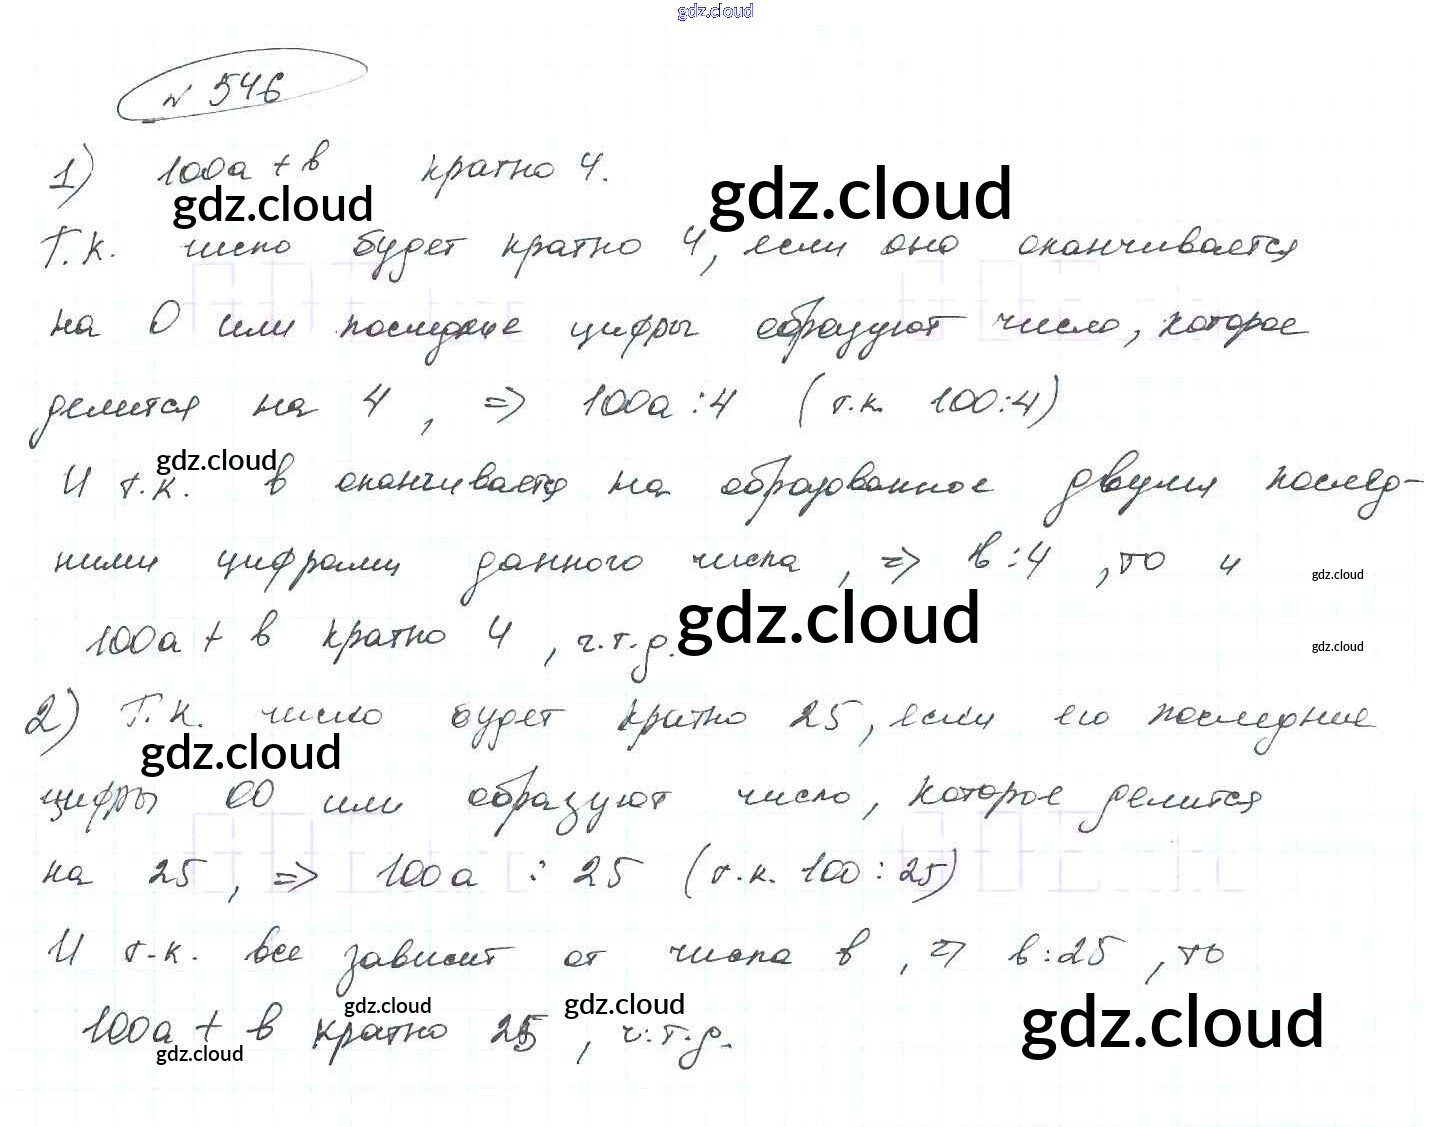 gdz.cloud
№ 546
1) 100а + в кратно 4.
gdz.cloud gdz.cloud
Т.к. число будет кратно 4, если оно оканчивается
на 0 или последние цифры образуют число, которое
делится на 4, => 100а : 4 (т.к. 100:4)
gdz.cloud
И т.к. в оканчивается на образованное двумя послед-
ними цифрами данного числа, => в : 4, то и
gdz.cloud
100а + в кратно 4, ч.т.д.
gdz.cloud
gdz.cloud
2) Т.к. число будет кратно 25, если его последние
gdz.cloud
цифры 00 или образуют число, которое делится
на 25, => 100а : 25 (т.к. 100 : 25)
И т.к. все зависит от числа в, => в : 25, то
gdz.cloud gdz.cloud
100а + в кратно 25, ч.т.д.
gdz.cloud
gdz.cloud